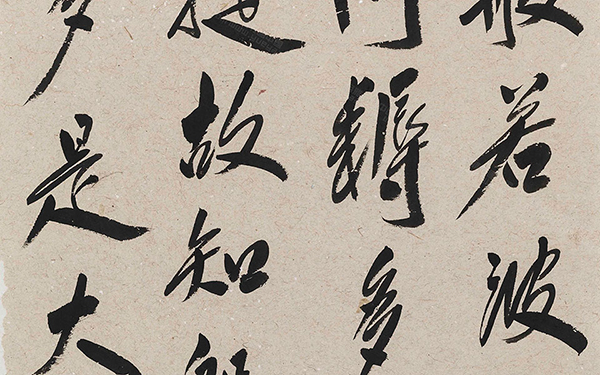 般若波
阿耨多
提故知般
多是大